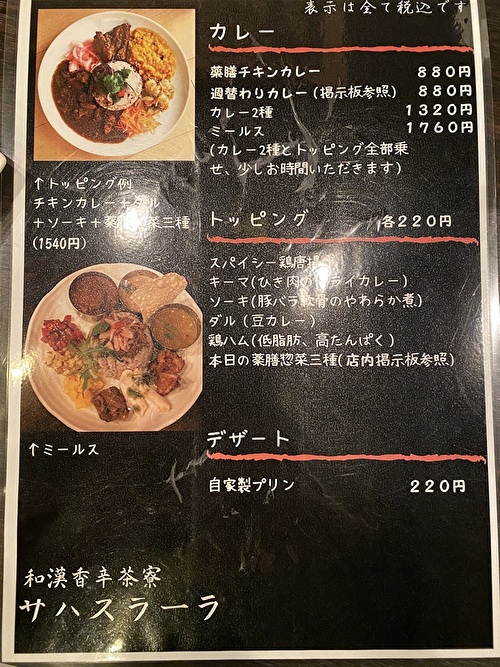 表示は全て税込です
カレー
薬膳チキンカレー 880円
週替わりカレー(掲示板参照) 880円
カレー2種 1320円
ミールス 1760円
(カレー2種とトッピング全部乗
せ、少しお時間いただきます)
↑トッピング例
チキンカレー＋ダル
＋ソーキ＋薬膳惣菜三種
(1540円)
トッピング 各220円
スパイシー鶏唐揚げ
キーマ(ひき肉のドライカレー)
ソーキ(豚バラ軟骨のやわらか煮)
ダル(豆カレー)
鶏ハム(低脂肪、高たんぱく)
本日の薬膳惣菜三種(店内掲示板参照)
↑ミールス
デザート
自家製プリン 220円
和漢香辛茶寮
サハスラーラ